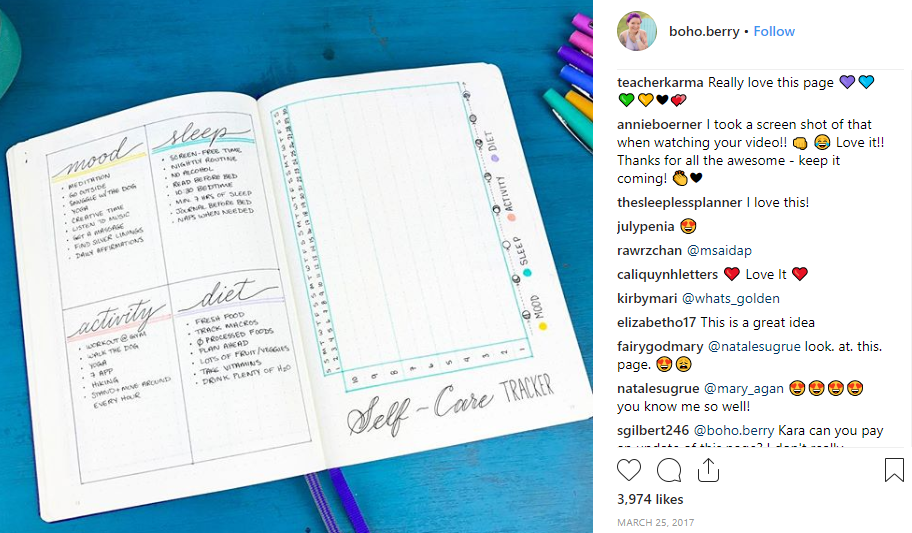 mood
MEDITATION
GO OUTSIDE
SNUGGLE W/ THE DOG
YOGA
CREATIVE TIME
LISTEN TO MUSIC
GET A MASSAGE
FIND SILVER LININGS
DAILY AFFIRMATIONS
sleep
SCREEN-FREE TIME
NIGHTLY ROUTINE
NO ALCOHOL
READ BEFORE BED
10:30 BEDTIME
MIN. 7 HRS OF SLEEP
JOURNAL BEFORE BED
NAPS WHEN NEEDED
activity
WORKOUT @ GYM
WALK THE DOG
YOGA
7 APP
HIKING
STAND + MOVE AROUND
EVERY HOUR
diet
FRESH FOOD
TRACK MACROS
Ø PROCESSED FOODS
PLAN AHEAD
LOTS OF FRUIT/VEGGIES
TAKE VITAMINS
DRINK PLENTY OF H2O
DIET
ACTIVITY
SLEEP
MOOD
10 9 8 7 6 5 4 3 2 1
Self-Care TRACKER
boho.berry • Follow
teacherkarma Really love this page 💜💙
💚💛🖤💕
annieboerner I took a screen shot of that
when watching your video!! 👊 😂 Love it!!
Thanks for all the awesome - keep it
coming! 👏🖤
thesleeplessplanner I love this!
julypenia 😍
rawrzchan @msaidap
caliquynhletters ❤️ Love It ❤️
kirbymari @whats_golden
elizabetho17 This is a great idea
fairygodmary @natalesugrue look. at. this.
page. 😍😩
natalesugrue @mary_agan 😍😍😍😍
you know me so well!
sgilbert246 @boho.berry Kara can you pay
an update of this page? I don't really
3,974 likes
MARCH 25, 2017